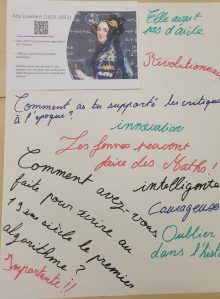 Ada Lovelace (1815-1852)
Elle avait
pas d'aide
Révolutionnaire
Comment as tu supporté les critiques
à l'époque?
innovation
Les femmes peuvent
faire des Maths!
intelligente
Comment avez-vous
faite pour écrire au
19ème siècle le premier
algorithme?
Courageuse
Oublier
dans l'hist
Importante!!